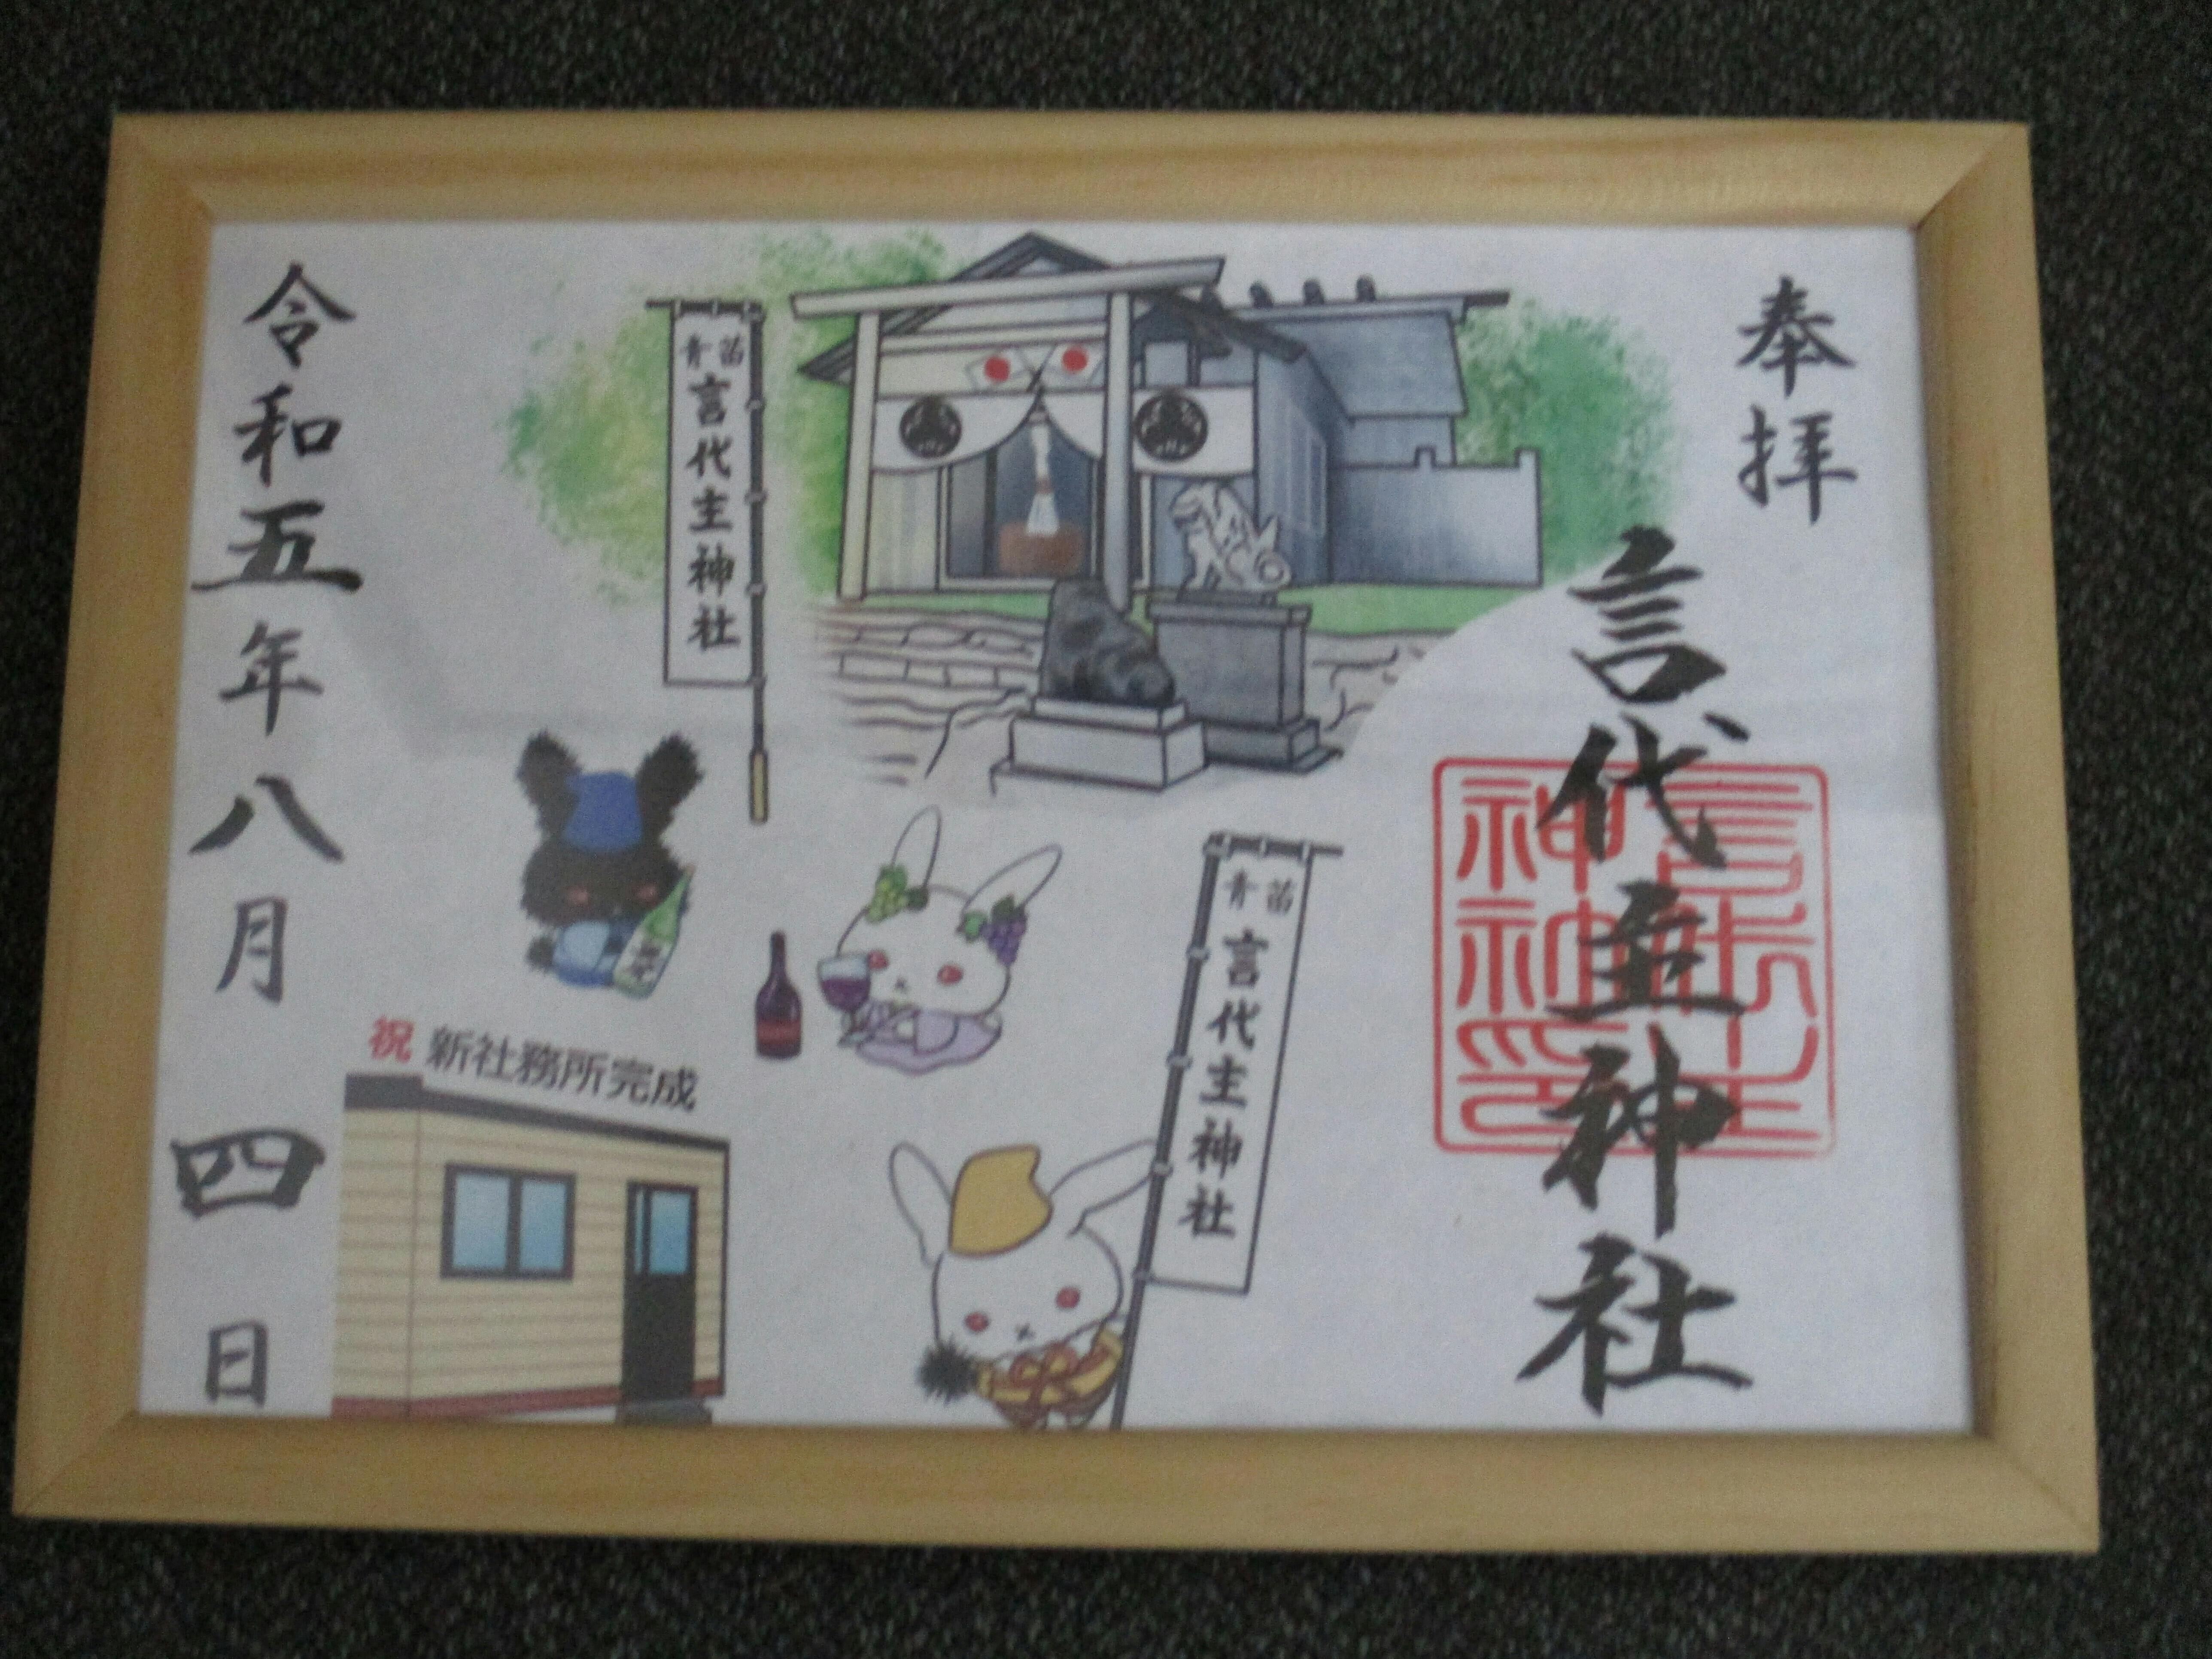 奉拝
言代主神社
青苗
言代主神社
青苗
言代主神社
祝 新社務所完成
令和五年八月四日